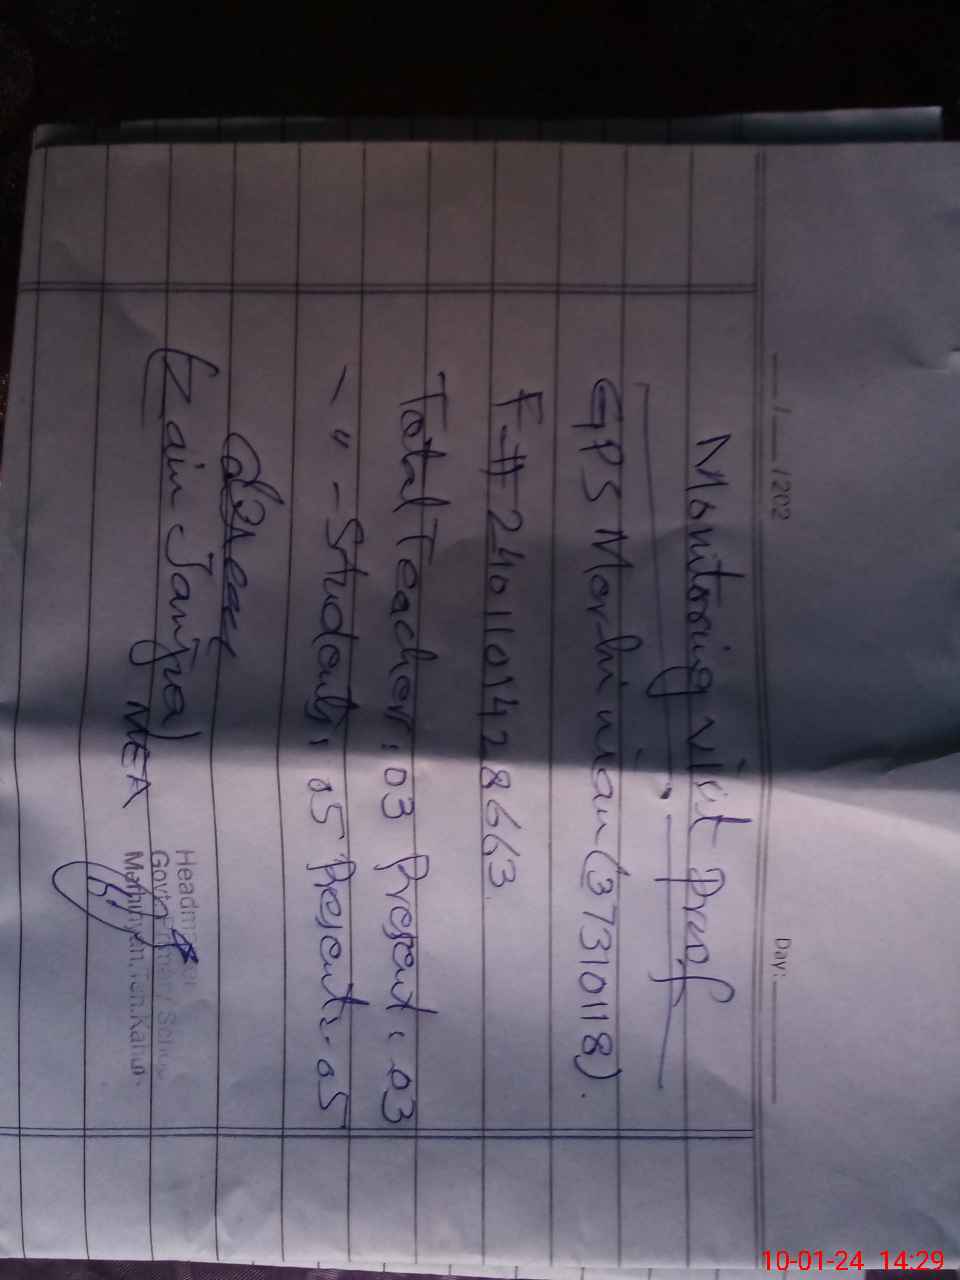 __/__/202 Day:
Monitoring visit proof
GPS Marhi nian (37310118).
F-# 2401101428663.
Total Teacher: 03 Present: 03
〃 - Students: 05 Present: 05
Zain Janjral
MEA
Headm
Govt. Primary School
Teh. Kahu
10-01-24 14:29